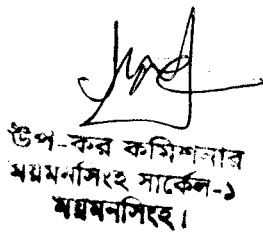 উপ-কর কমিশনার
ময়মনসিংহ সার্কেল-১
ময়মনসিংহ।